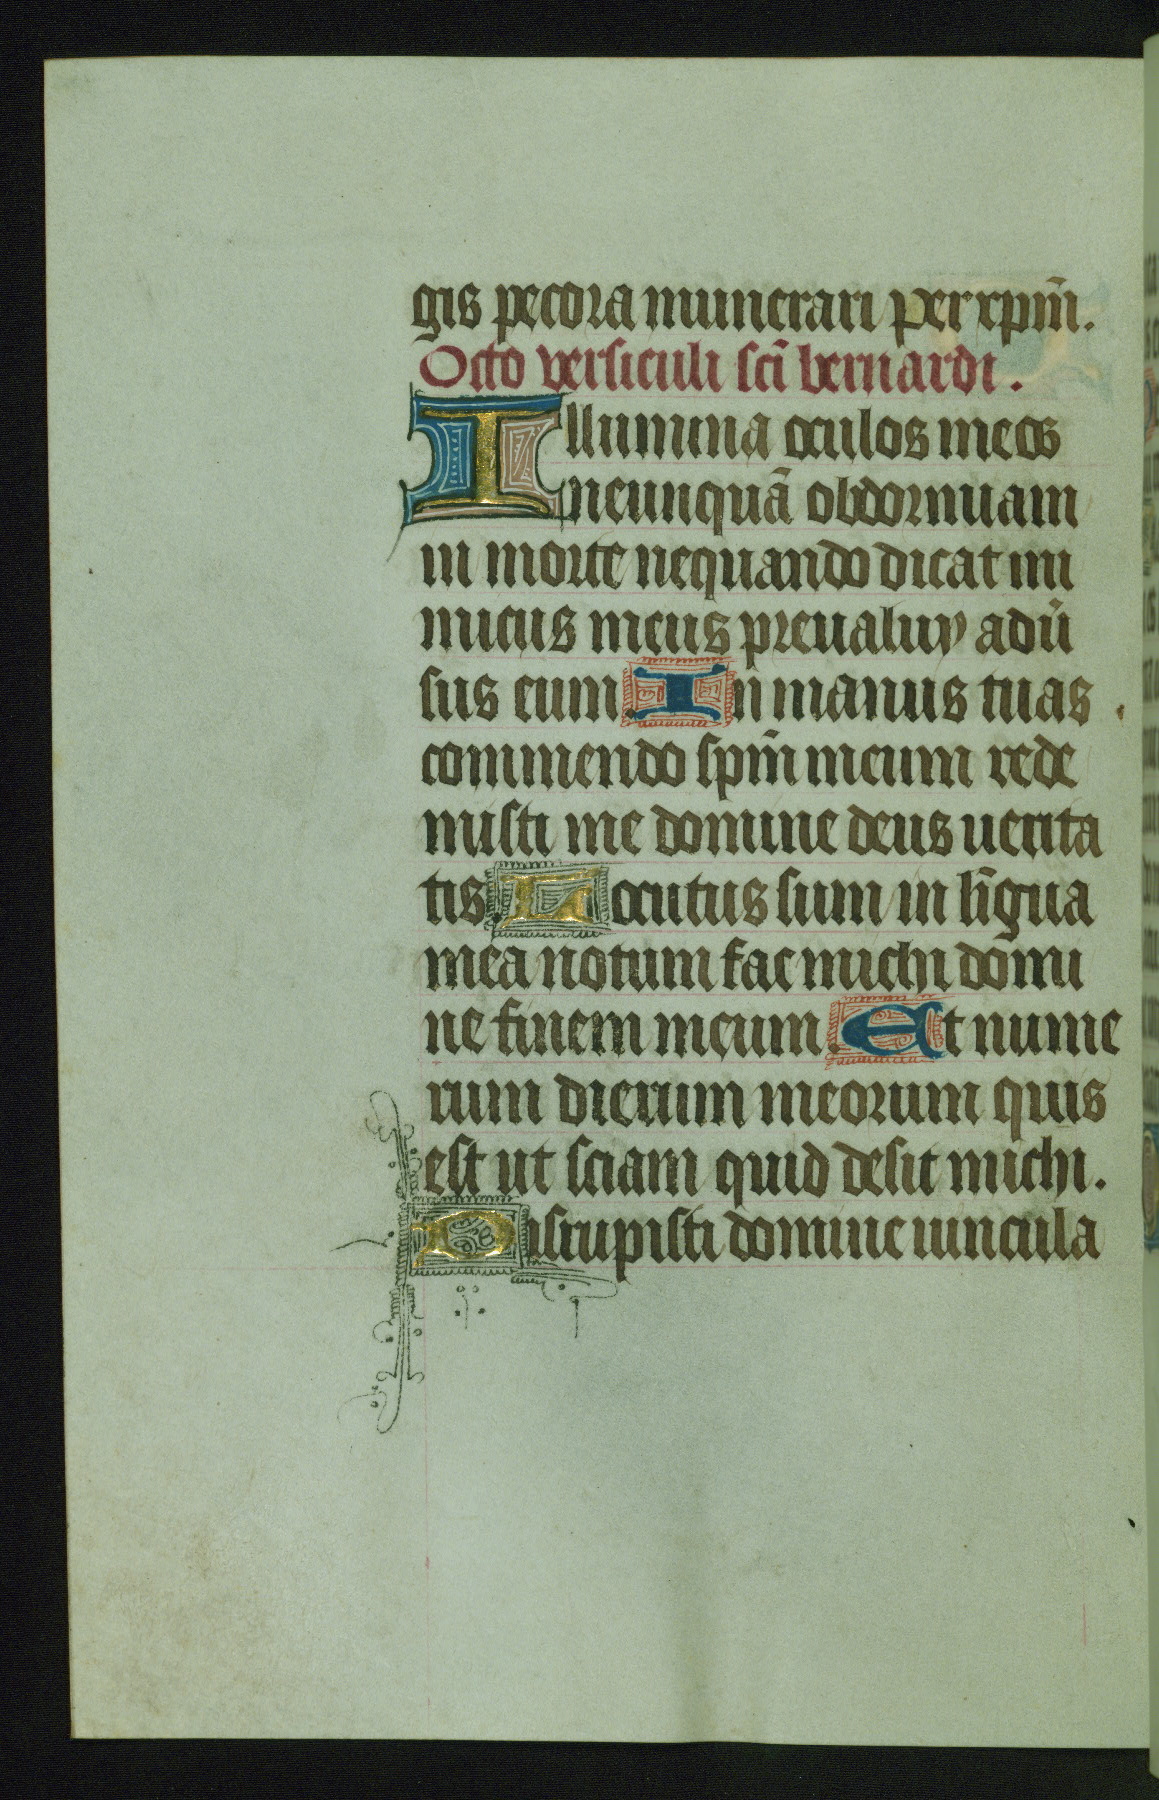 gis pecora munerari per xpm̄.
Octo versiculi sc̄i bernardi.
Illumina oculos meos
ne unquā obdormiam
in morte ne quando dicat ini
micus meus preualuy adū
sus eum. In manus tuas
commendo spm̄ meum rede
misti me domine deus uerita
tis. Locutus sum in līgua
mea notum fac michi domi
ne finem meum. Et nume
rum dierum meorum quis
est ut sciam quid desit michi.
Disrupisti domine uincula